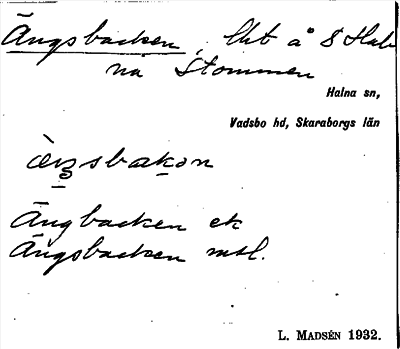 Ängsbacken, lht å S Hal-
na Stommen
Halna sn,
Vadsbo hd, Skaraborgs län
Ängbacken ek
Ängsbacken mtl.
L. MADSÉN 1932.